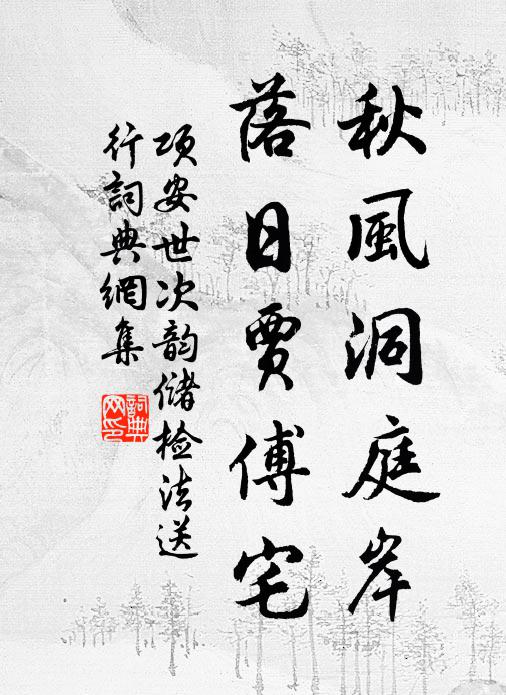 秋風洞庭岸
落日賈傅宅
项安世次韵储检法送
行詞典網集
詞典
网印